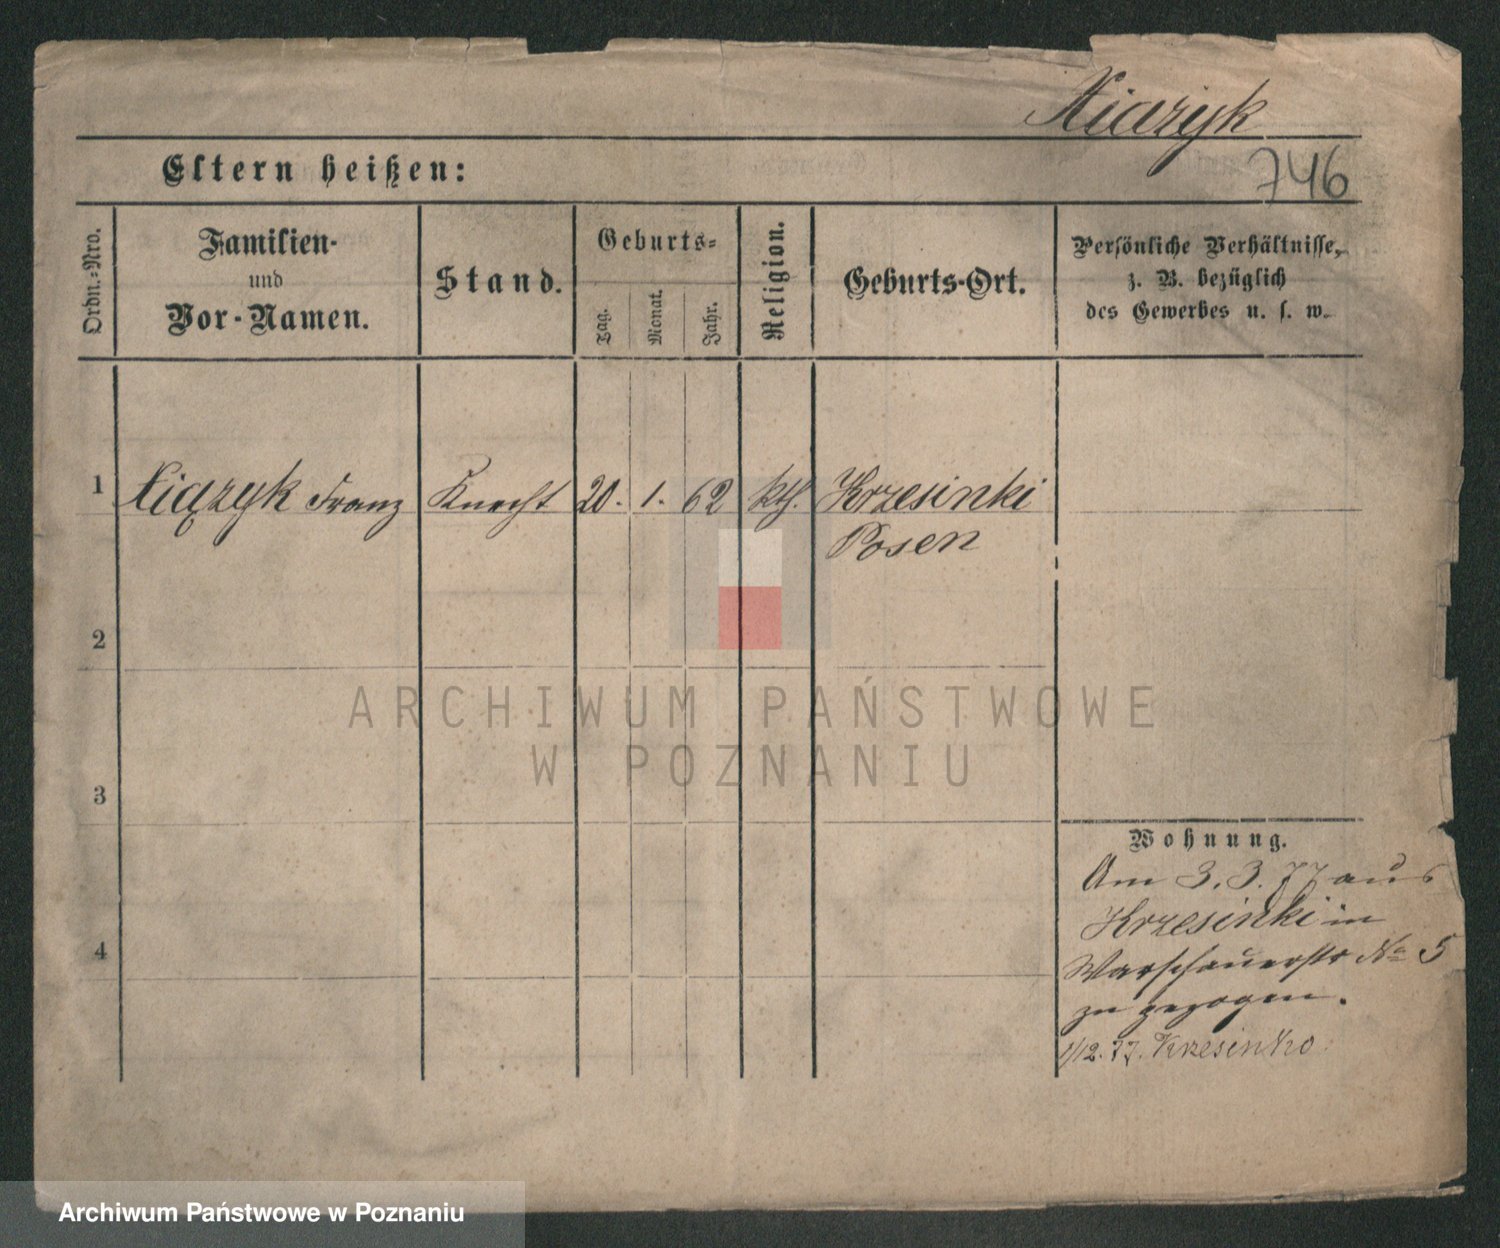 Xiązyk
746
Eltern heißen:
Ordn.-Nro.
Familien-
und
Vor-Namen.
Stand.
Geburts-
Tag.
Monat.
Jahr.
Religion.
Geburts-Ort.
Persönliche Verhältnisse,
z. B. bezüglich
des Gewerbes u. s. w.
1 Xiązyk Franz Knecht 20. 1. 62 kth. Krzesinki
Posen
2
3
4
Wohnung.
Am 3.3.77 aus
Krzesinki in
Warschauerstr No 5
zu gezogen.
1/12.77. Krzesinko
ARCHIWUM PAŃSTWOWE
W POZNANIU
Archiwum Państwowe w Poznaniu